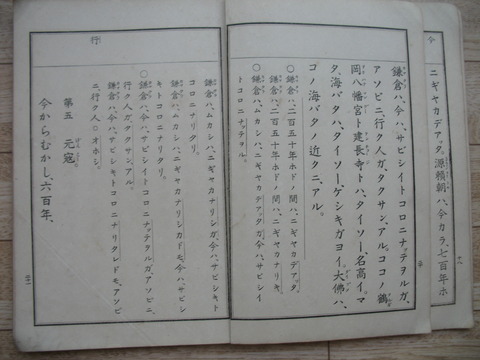 今
ニギヤカデアッタ。源頼朝ハ、今カラ、七百年ホ
十八
鎌倉ハ、今ハ、サビシイトコロニナッテヲルガ、
アソビニ行ク人ガ、タクサンアル。ココノ鶴
岡八幡宮ト建長寺トハ、タイソー、名高イ。マ
タ、海バタハ、タイソー、ケシキガヨイ。大佛ハ、
コノ海バタノ近クニアル。
〇鎌倉ハ、二百五十年ホドノ間ハ、ニギヤカデアッタ。
鎌倉ハ、二百五十年ホドノ間ハ、ニギヤカナリキ。
〇鎌倉ハ、ムカシハ、ニギヤカデアッタガ、今ハ、サビシイ
トコロニナッテヲル。
行
鎌倉ハ、ムカシハ、ニギヤカナリシガ、今ハ、サビシキト
コロニナリタリ。
鎌倉ハ、ムカシハ、ニギヤカナリシカドモ、今ハ、サビシ
キトコロニナリタリ。
〇鎌倉ハ、今ハ、サビシイトコロニナッテヲルガ、アソビニ、
行ク人ガ、タクサンアル。
鎌倉ハ、今ハ、サビシキトコロニナリタレドモ、アソビ
ニ、行ク人、オホシ。
第五 元寇
今からむかし、六百年、